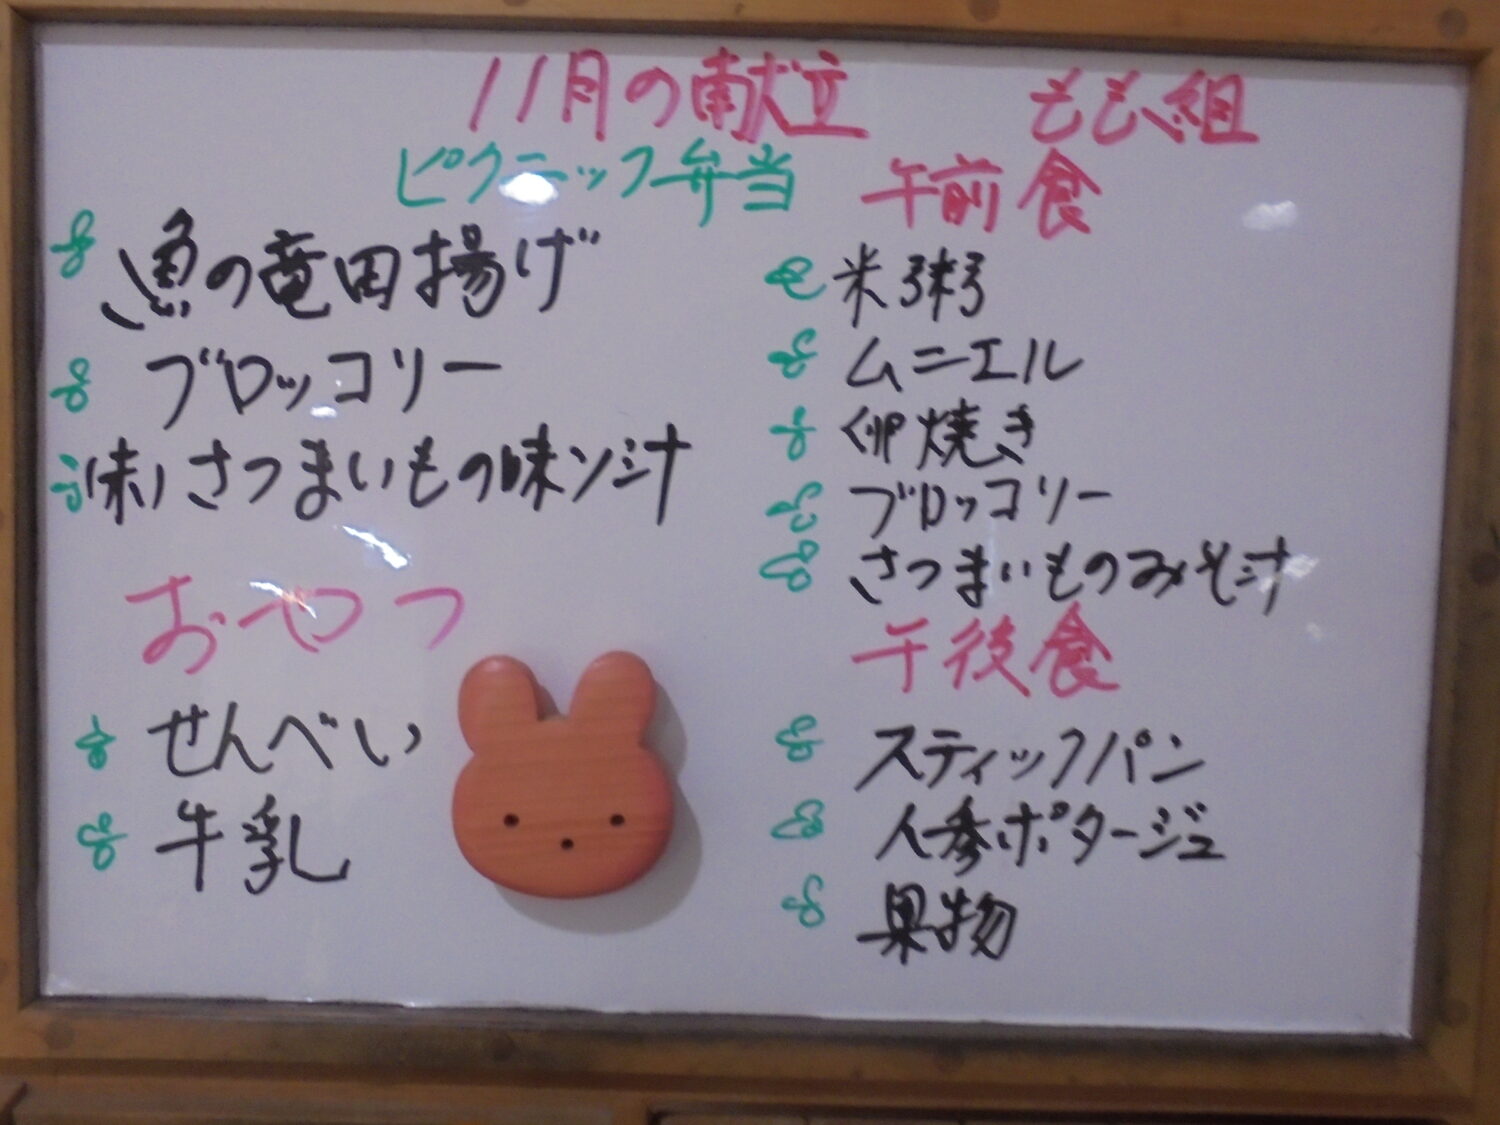 11月の献立 もも組
ピクニック弁当
魚の竜田揚げ
ブロッコリー
さつまいもの味ソ汁
おやつ
せんべい
牛乳
午前食
米粥
ムニエル
卵焼き
ブロッコリー
さつまいものみそ汁
午後食
スティックパン
人参ポタージュ
果物